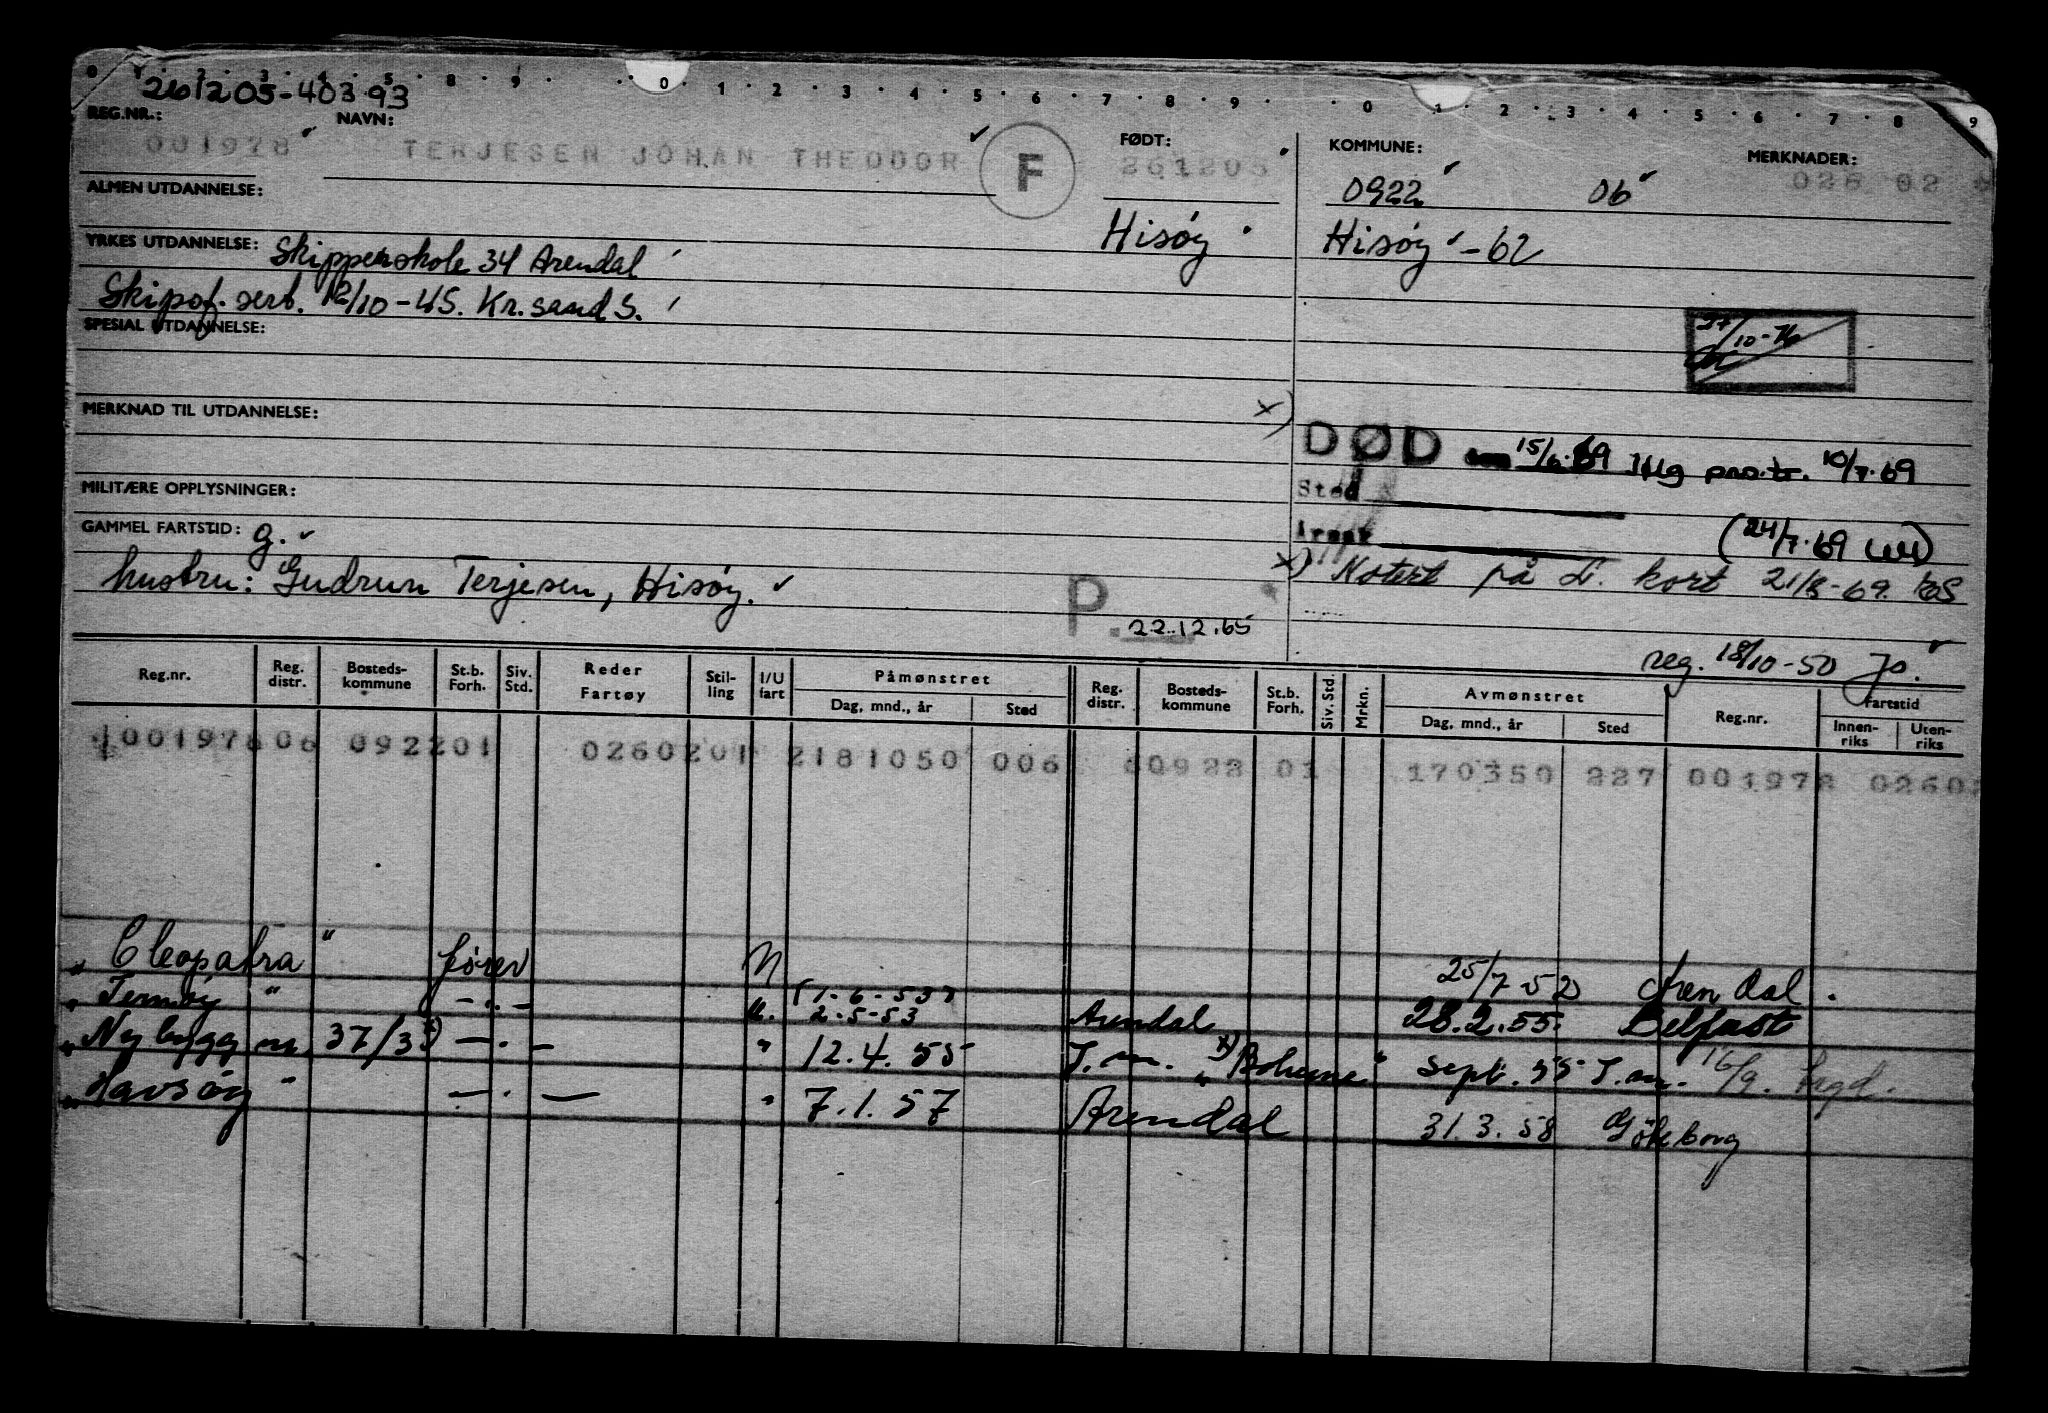 0 1 2 3 4 5 . 8 . 9 . . . 0 . 1 . 2 . 3 . 4 . 5 . 6 . 7 . 8 . 9 . . 0 . 1 . 2 . 3 . 4 . 5 . 6 . 7 . 8 9
261205-403.93
REG.NR.: NAVN: FØDT: KOMMUNE: MERKNADER:
001978 TERJESEN JOHAN THEODOR F 261205 0922 06 026 02
ALMEN UTDANNELSE:
Hisøy Hisøy -62
YRKES UTDANNELSE: Skipperskole 34 Arendal
Skipsf. sert. 12/10-45. Kr.sand S.
SPESIAL UTDANNELSE:
27/10-76
MERKNAD TIL UTDANNELSE:
x) DØD 15/6.69 10/7.69
Sted
MILITÆRE OPPLYSNINGER:
Årsak (24/7.69)
GAMMEL FARTSTID: g.
x) Notert på kort 21/8-69.
hustru: Gudrun Terjesen, Hisøy.
P. 22.12.65
reg. 18/10-50 Jo.
Reg.nr. Reg. distr. Bosteds-kommune St.b. Forh. Siv. Std. Reder Fartøy Stil-ling I/U fart Påmønstret Dag, mnd., år Sted Reg. distr. Bosteds-kommune St.b. Forh. Siv. Std. Mrkn. Avmønstret Dag, mnd., år Sted Reg.nr. Fartstid Innen-riks Uten-riks
1001978 06 092201 0260201 2181050 006 60922 01 170350 227 001978 0260
" Cleopatra " fører N 25/7 52 Arendal.
" Ternøy " -.- ". (1-6-53) 2-5-53 Arendal 28.2.55 Belfast
" Nybygg nr. 37/3 x) -.- " 12.4.55 T.m. x) "Boheme" Sept. 55 T.m. 16/9.
" Havsøy " -.- " 7.1.57 Arendal 31.3.58 Göteborg